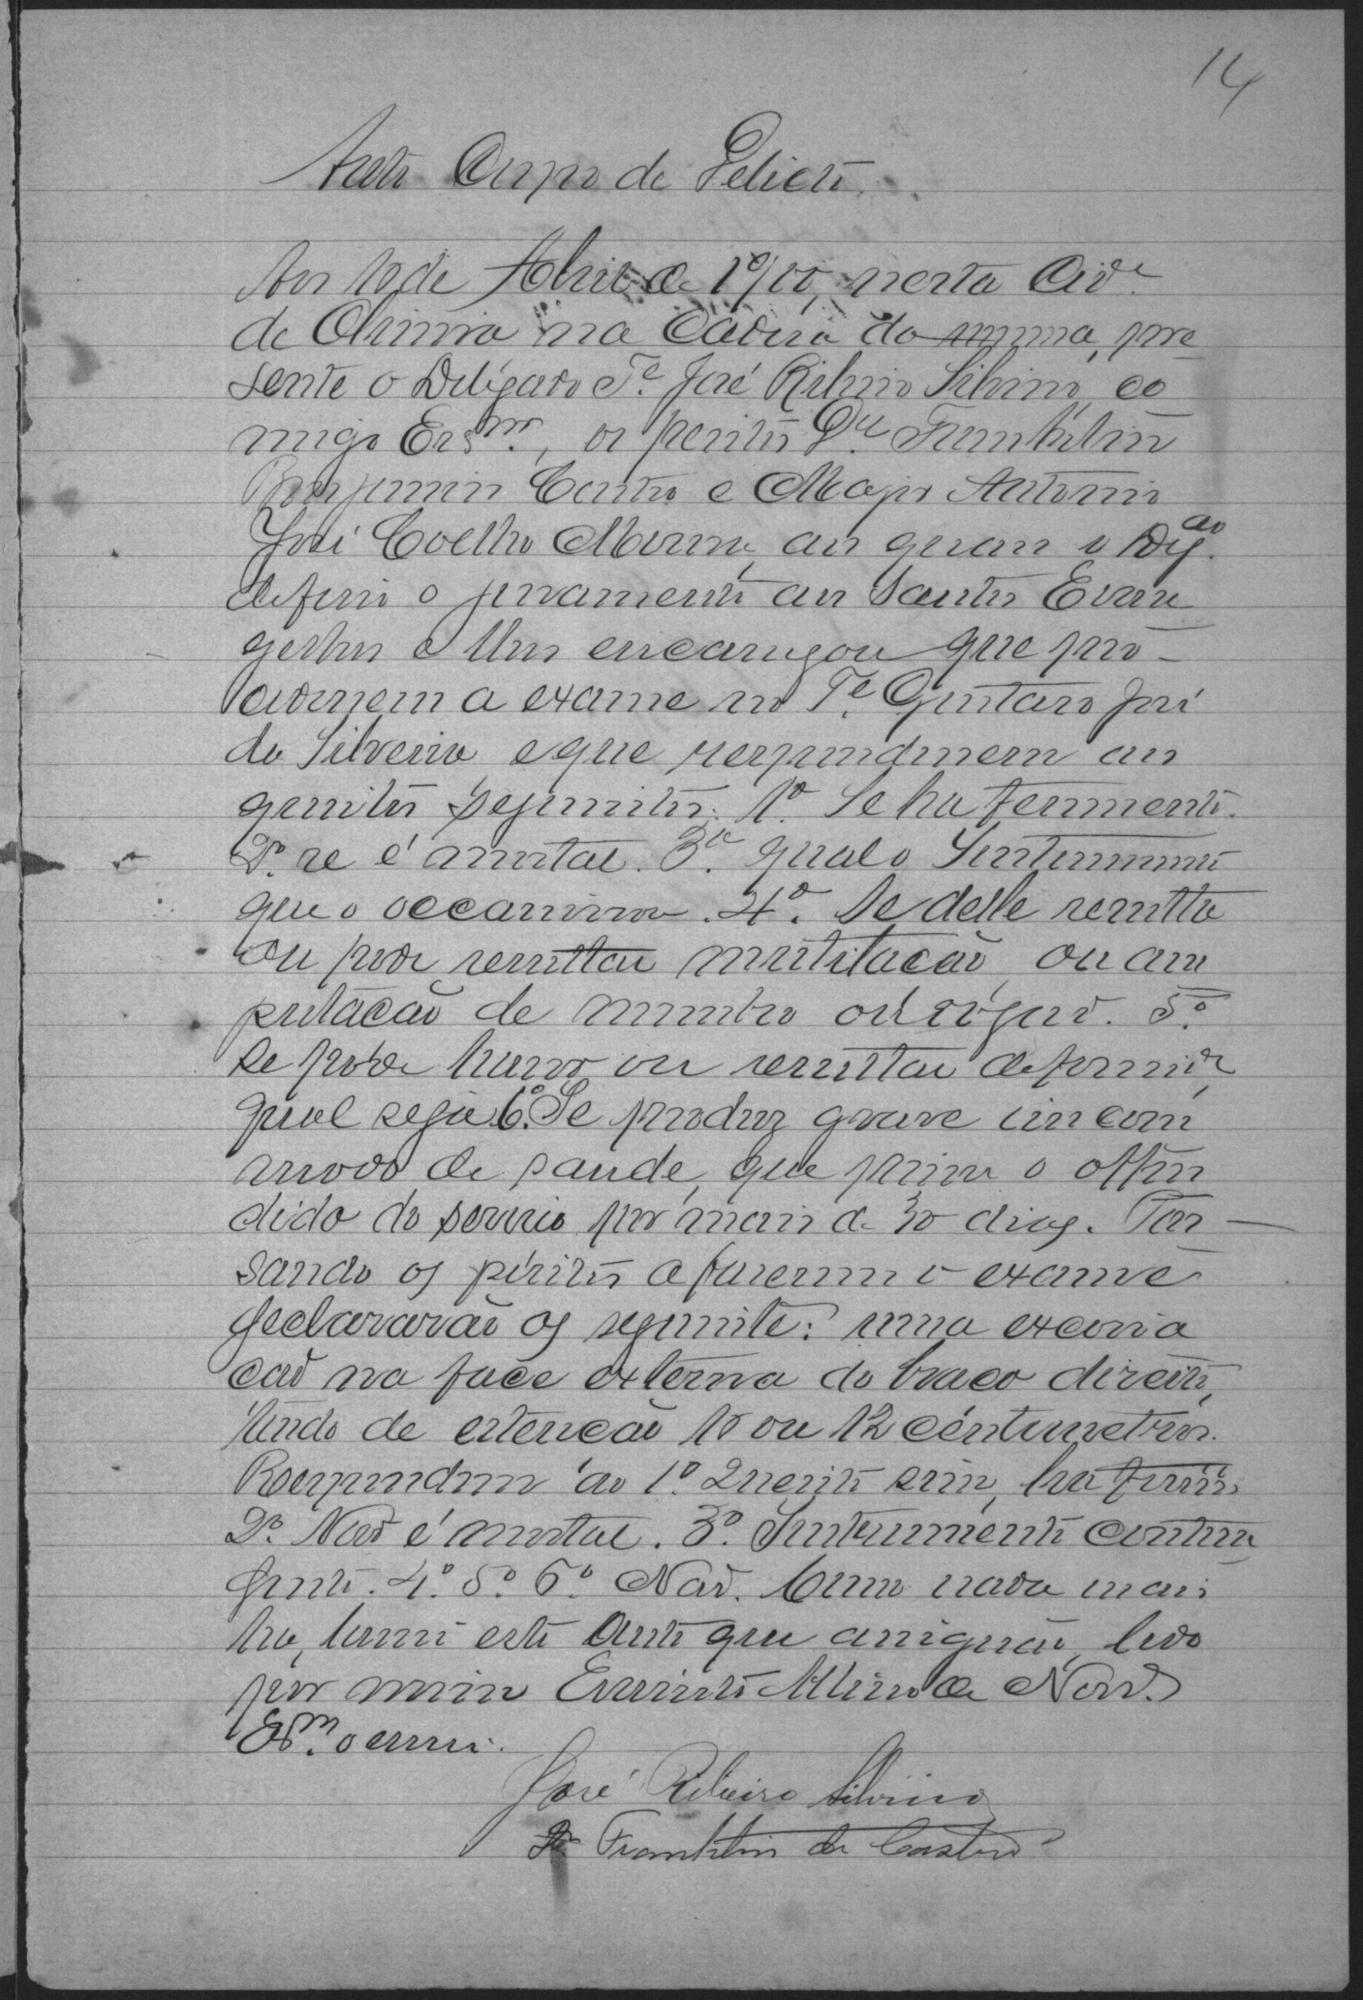 14
Auto Corpo de Delicto.
Aos 10 de Abril de 1900, nesta Cid.e
de na Cadeia da mesma, pre
sente o Delegado T.e José Ribeiro Silvino, co
migo Escr.m, os peritos Dr. Franklin
Benjamin Castro e Major Antonio
José Coelho Moura, aos quaes o Deg.do
deferio o juramento aos Santos Evan
gelhos e lhes encarregou que pro-
cedessem a exame no T.e Gustavo José
da Silveira e que respondessem aos
quesitos seguintes: 1º Se ha ferimento.
2º se é mortal. 3º qual o Instrumento
que o occasionou. 4º. Se delle resulta
ou pode resultar mutilacão ou am
putacão de membro ou orgão. 5.º
Se póde haver ou resultar deformid.e
qual seja 6º. Se produz grave incom
modo de saude, que prive o offen
dido do servico por mais de 30 dias. Pas-
sando os péritos a fazerem o exame
declararão os seguinte: uma excoria
cão na face externa do braco direito,
tendo de estencão 10 ou 12 centimetros.
Respondem ao 1º. Quesito sim, ha ferim.to
2º. Não é mortal. 3º. Instrumento contun
dente. 4º. 5º. 6º. Não. Como nada mais
ha, lavrei este Auto que assignão, lido
por mim de
Es.m o escrevi.
José Ribeiro Silvino
Dr Franklin de Castro